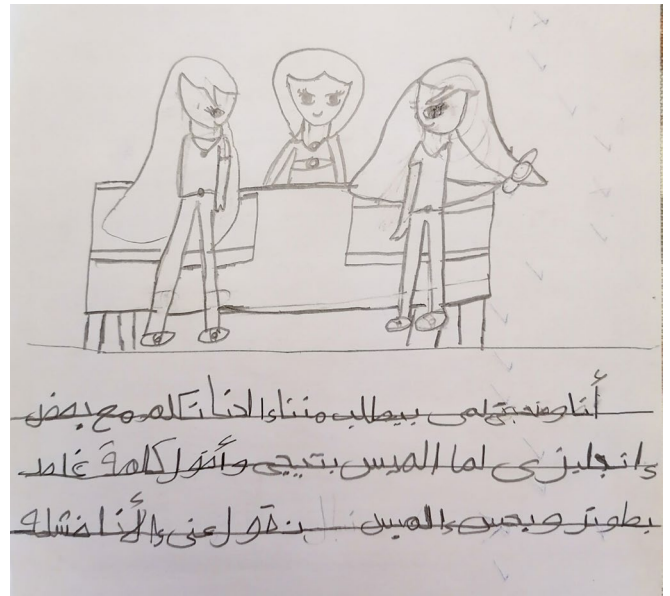 أنا وصحبتى لمى بيطلب مننا إننا نتكلم مع بعض
إنجليزى لما الميس بتيجى وأقول كلمة غلط
بطوتر وبحس الميس بتقول عنى إن أنا فشله